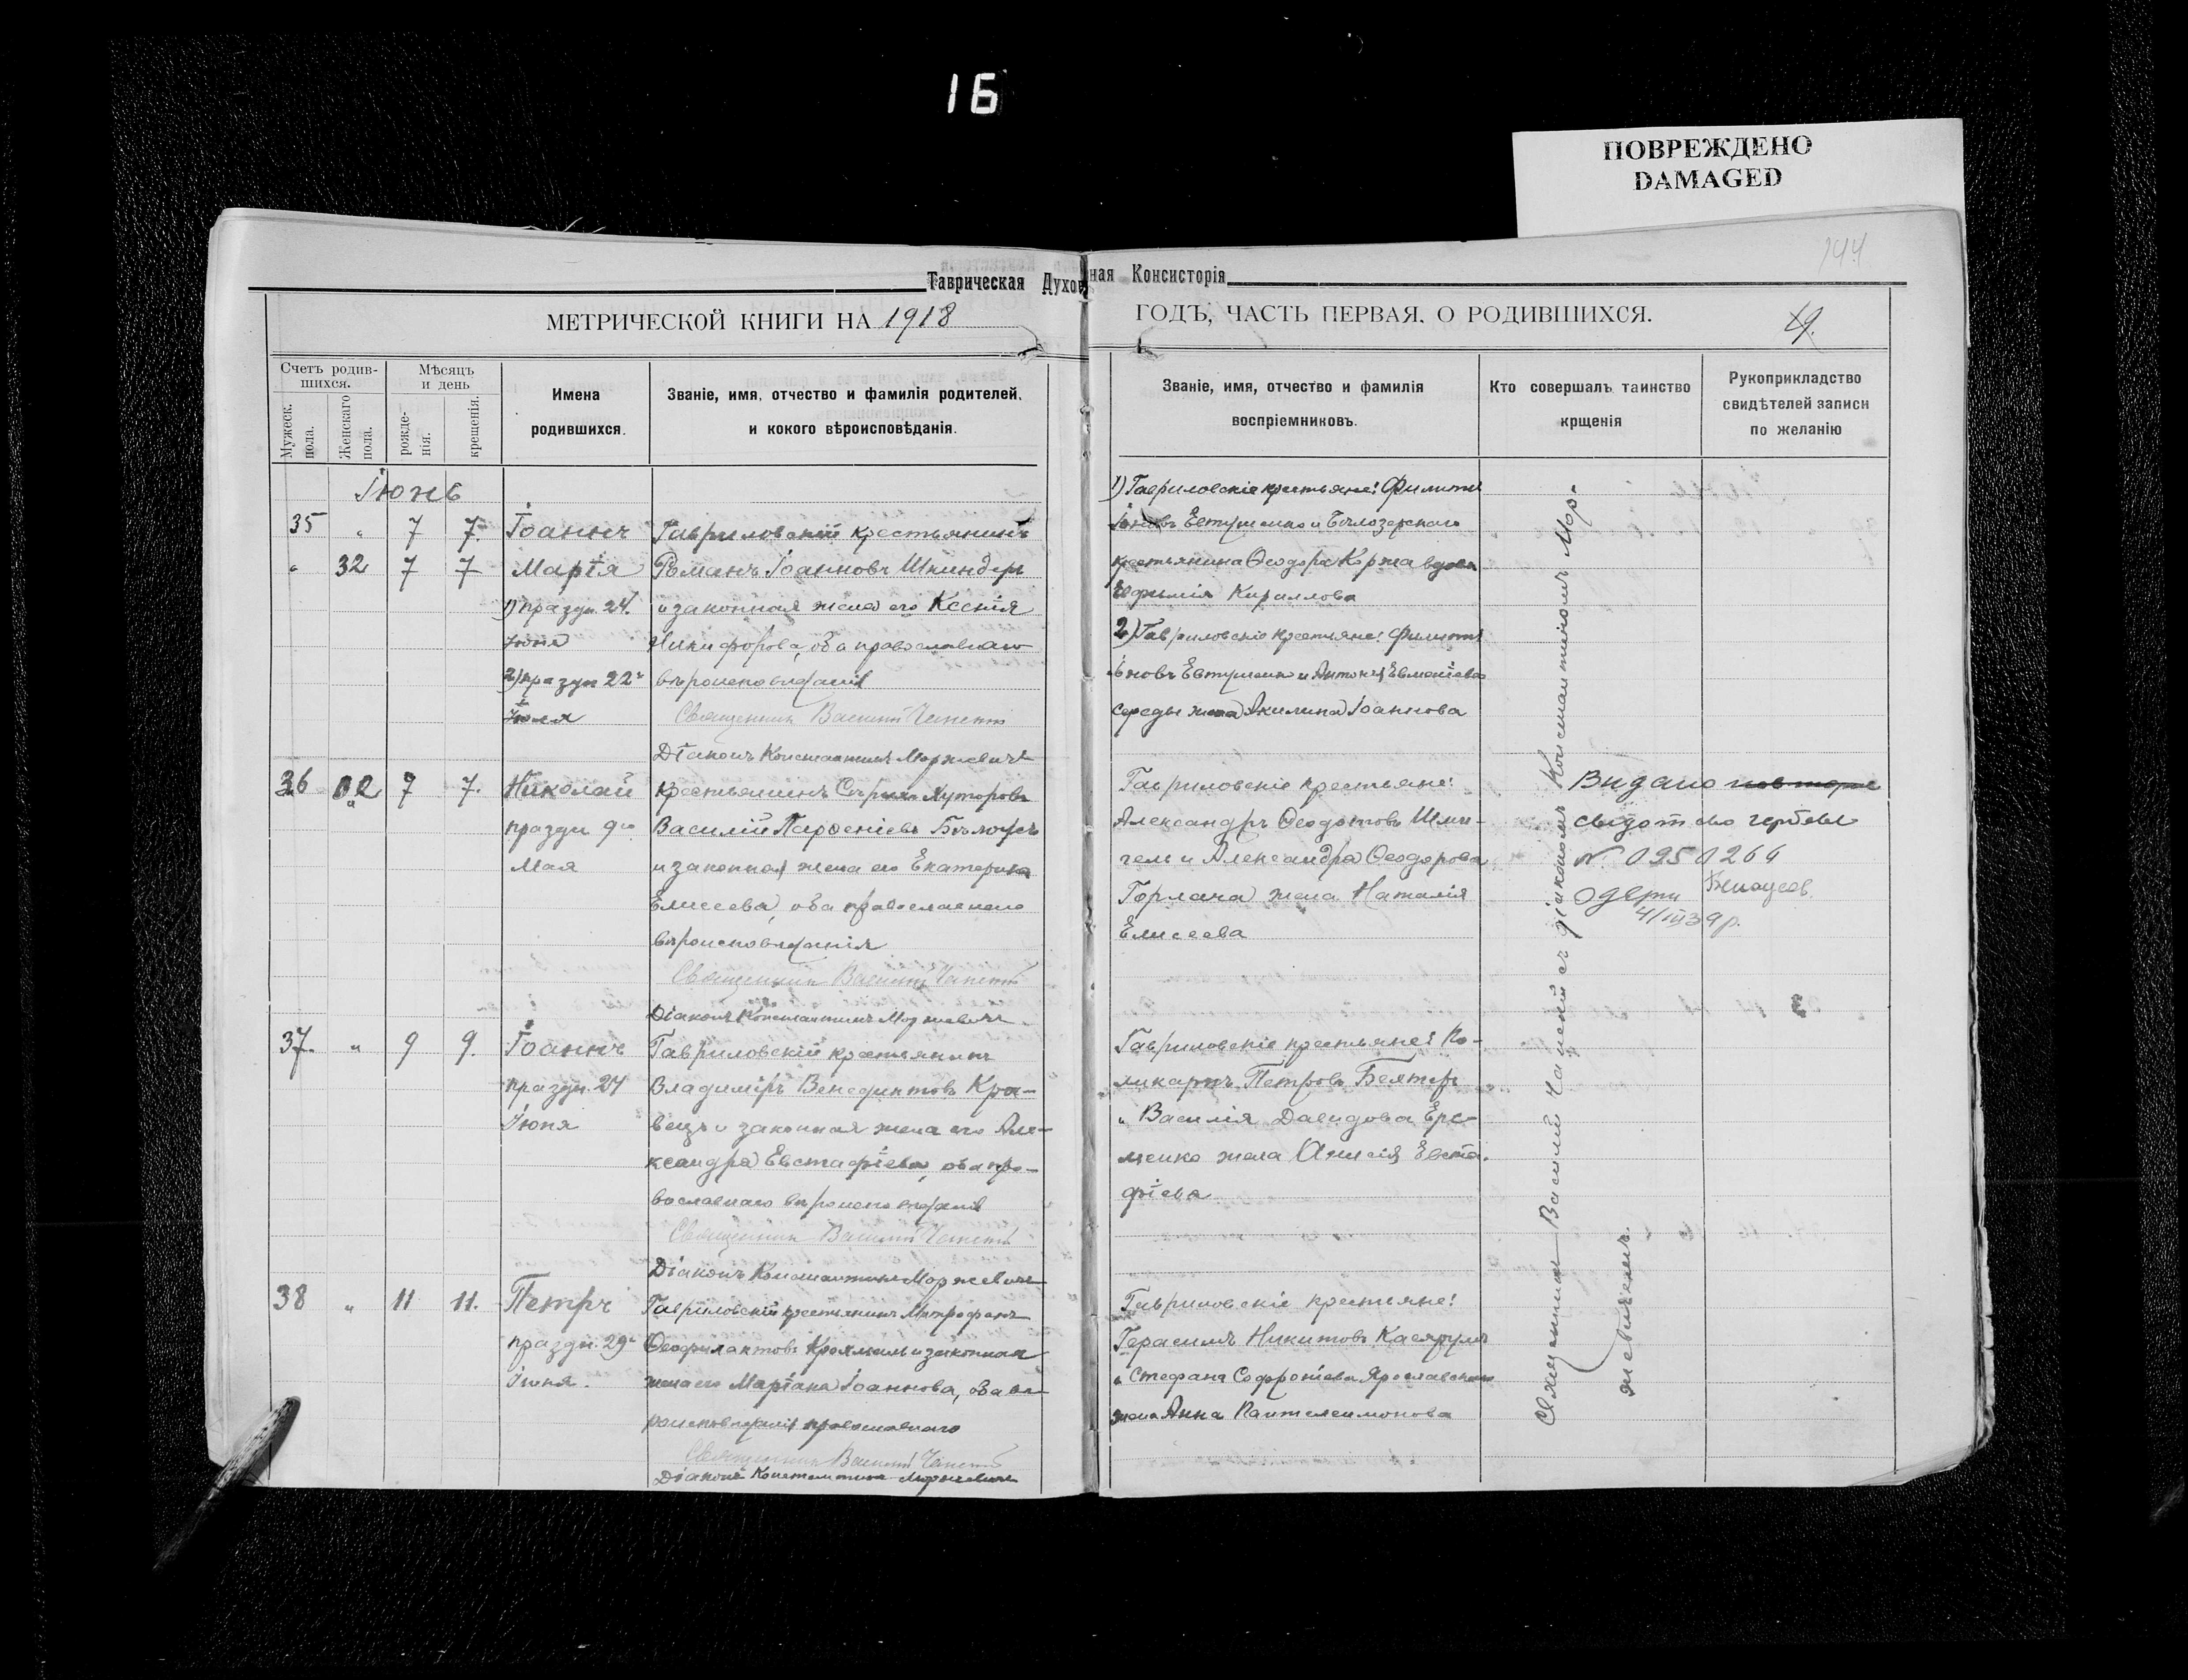 16
ПОВРЕЖДЕНО
DAMAGED
144
Таврическая Духовная Консисторія
МЕТРИЧЕСКОЙ КНИГИ НА 1918
ГОДЪ, ЧАСТЬ ПЕРВАЯ, О РОДИВШИХСЯ.
Счетъ родив-
шихся.
Мужеск.
пола.
Женскаго
пола.
Мѣсяцъ
и день
рожде-
нія.
крещенія.
Имена
родившихся.
Званіе, имя, отчество и фамилія родителей,
и кокого вѣроисповѣданія.
Званіе, имя, отчество и фамилія
воспріемниковъ.
Кто совершалъ таинство
крщенія
Рукоприкладство
свидѣтелей записи
по желанію
Іюнь
35 " 7 7. Іоаннъ
" 32 7 7 Марія
1) праздн. 24.
Іюня
2) праздн 22
Іюля
Гавриловскій крестьянинъ
Романъ Іоанновъ Шкиндер
и законная жена его Ксенія
Никифорова, оба православнаго
вѣроисповѣданія
Священникъ Василій
Діаконъ Константинъ Моржевичъ
1) Гавриловскіе крестьяне: Филиппъ
Евтушенко и Бѣлозерскаго
крестьянина Ѳеодора Коржа вдова
Евфимія Кириллова
2) Гавриловскіе крестьяне: Филиппъ
Евтушенко и Антонія Евменіева
Середы жена Акилина Іоаннова
36 7 7. Николай
праздн 9го
Мая
крестьянинъ Хуторовъ
Василій Парѳеніевъ Бѣлоусъ
и законная жена его Екатерина
Елисеева, оба православнаго
вѣроисповѣданія
Священникъ Василій
Діаконъ Константинъ Моржевичъ
Гавриловскіе крестьяне:
Александръ Ѳеодотовъ
и Александра Ѳеодорова
Горлача жена Наталія
Елисеева
Видано
свідотство гербове
№ 0950264
Одерж Билоусов
4/III 39 р.
37. " 9 9. Іоаннъ
праздн. 24
Іюня
Гавриловскій крестьянинъ
Владиміръ Венедиктовъ Кра-
вецъ и законная жена его Але-
ксандра Евстафіева, оба пра-
вославнаго вѣроисповѣданія
Священникъ Василій
Діаконъ Константинъ Моржевичъ
Гавриловскіе крестьяне: По-
ликарпъ Петровъ
и Василія Давидова Ере-
менко жена Анисія Евста-
фіева
38 " 11 11. Петръ
праздн. 29
Іюня.
Гавриловскій крестьянинъ Митрофанъ
Ѳеофилактовъ и законная
жена его Маріана Іоаннова, оба вѣ-
роисповѣданія православнаго
Священникъ Василій
Діаконъ Константинъ Моржевичъ
Гавриловскіе крестьяне:
Герасимъ Никитовъ
и Стефана Софроніева
жена Анна Пантелеимонова
Священникъ Василій съ діакономъ Константиномъ Мор-
жевичемъ.